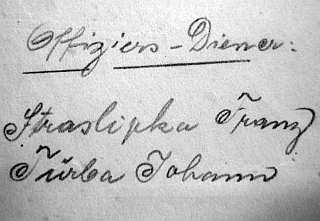 Offiziers-Diener:
Straslipka Franz
Turba Johann